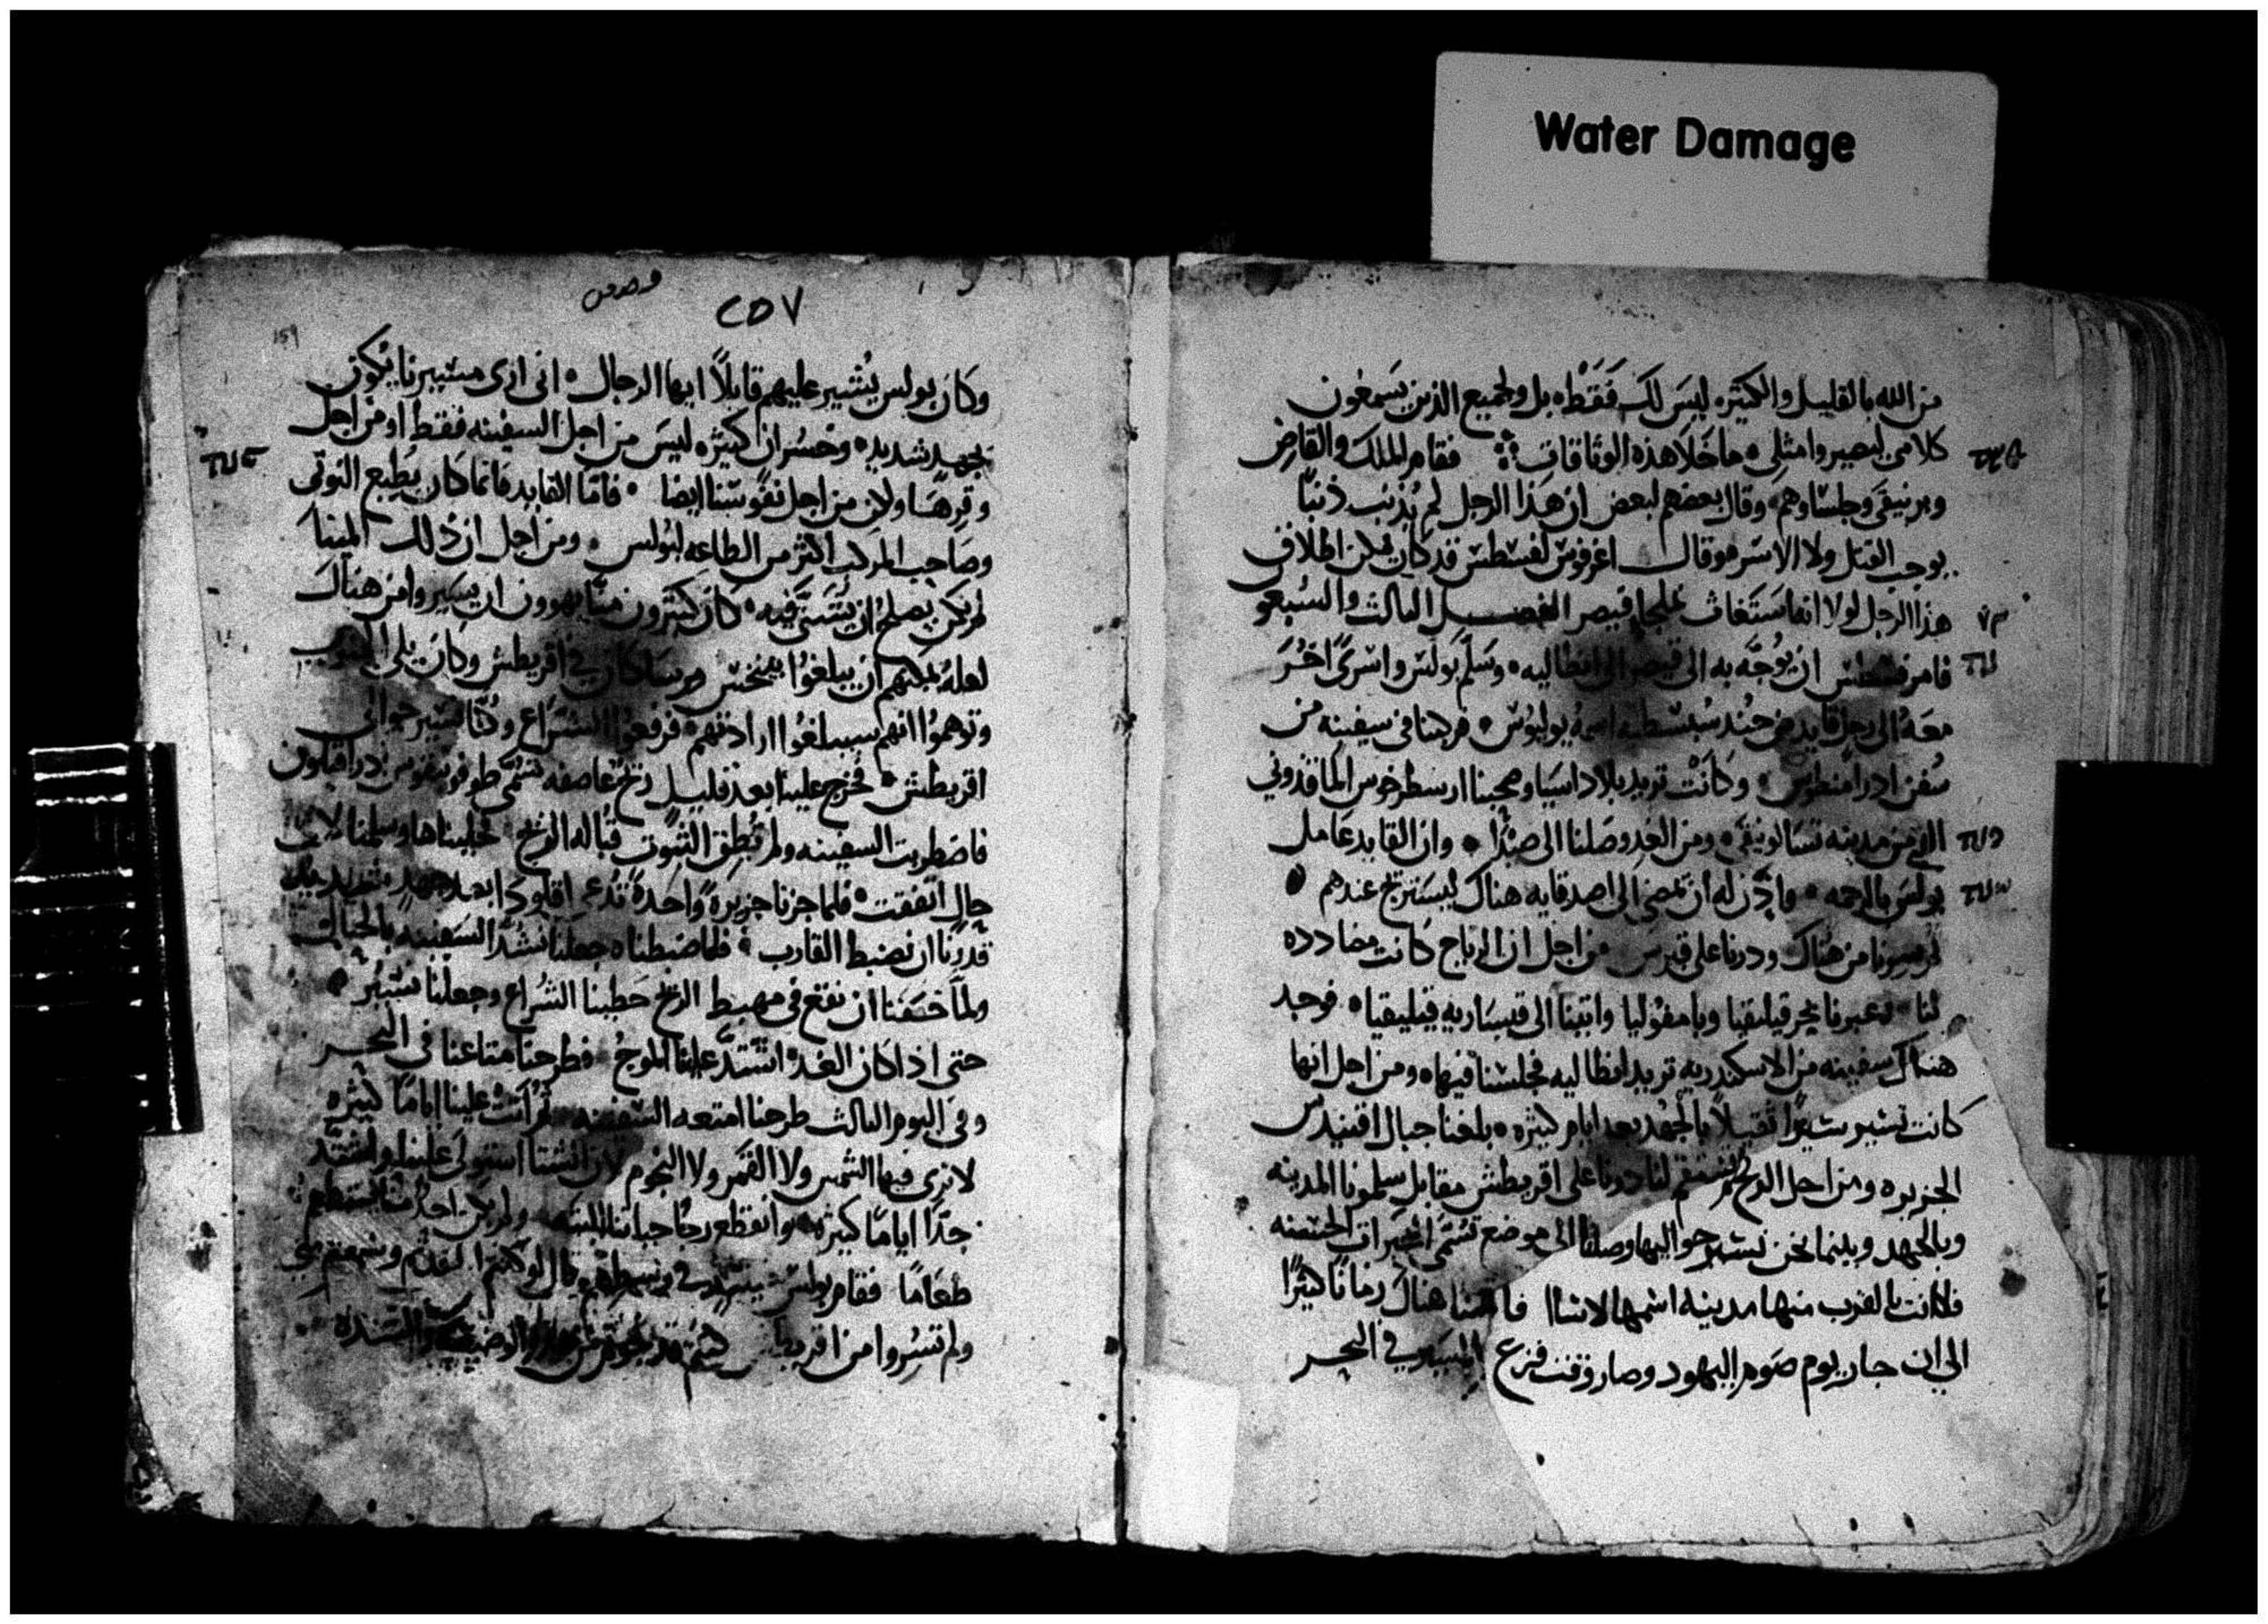 Water Damage
من الله بالقليل والكثيره ليس لك فقط بل ولجميع الذين يسمعون
كلامي ليصيروا مثلي ما خلا هذه الوثاقات فقام الملك والقاضي
وبرنيقي وجلساوهم وقال بعضهم لبعض ان هذا الرجل لم يذنب ذنبا
يوجب القتل ولا الاسر وقال اغرفوس لفسطس قد كان يمكن اطلاق
هذا الرجل لولا انه استغاث بملجا قيصر الفصل الثالث والسبعو
فامر فسطس ان يوجه به الى قيصر الى انطاليه وسلم بولس واسرى اخر
معه الى رجل قايد من جند سبسطيه اسمه يوليوس فركبنا في سفينه من
سفن ادرامنطوس وكانت تريد بلاد اسيا وصحبنا ارسطرخوس الماقذوني
الذي من مدينه تسالونيقي ومن الغد وصلنا الى صيدا وان القايد عامل
بولس بالرحمه واذن له ان يمضي الى اصدقايه هناك ليستريح عندهم
ثم سرنا من هناك ودرنا على قبرس من اجل ان الرياح كانت مضادده
لنا وعبرنا بحر قيليقيا وبامفوليا واتينا الى قيساريه قيليقيا فوجد
هناك سفينه من الاسكندريه تريد انطاليه فجلسنا فيها ومن اجل انها
كانت تسير سيرا ثقيلا بالجهد بعد ايام كثيره بلغنا جبال اقنيدس
الجزيره ومن اجل الريح لم تستقم لنا درنا على اقريطش مقابل سلمونا المدينه
وبالجهد وبينما نحن نسير حواليها وصلنا الى موضع تسمى الحسنه
فكانت بالقرب منها مدينه اسمها لاسا فاقمنا هناك زمانا كثيرا
الى ان جاز يوم صوم اليهود وصار وقت فزع المسير في البحر
٢٥٧
159
وكان بولس يشير عليهم قايلا ايها الرجال انى ارى مسيرنا يكون
بجهد شديد وخسران كثيره ليس من اجل السفينه فقط او من اجل
وقرها ولكن من اجل نفوسنا ايضا فاما القايد فانما كان يطيع النوتى
وصاحب المركب اكثر من الطاعه لبولس ومن اجل ان ذلك المينا
لم يكن يصلح ان يشتى فيه كان كثيرون منا يهوون ان يسيروا من هناك
لعله يمكنهم ان يبلغوا مرسا كان في اقريطش وكان يلى الجنوب
وتوهموا انهم سيبلغوا ارادتهم فرفعوا الشراع وكنا نسير حوالى
اقريطش فخرج علينا بعد قليل ريح عاصفه تسمى
فاضطربت السفينه ولم تطق الثبوت قباله الريح
حال اتفقت فلما جزنا جزيرة واحدة تدعى اقلودا بعد جهد شديد
قدرنا ان نضبط القارب فلما ضبطناه جعلنا نشد السفينه بالحبال
ولما خفنا ان نقع في مهبط الريح حطينا الشراع وجعلنا نسير
حتى اذا كان الغد اشتد علينا الموج فطرحنا متاعنا في البحر
وفي اليوم الثالث طرحنا امتعه السفينه علينا اياما كثيره
لا نرى فيها الشمس ولا القمر ولا النجوم لان الشتا استولى علينا واشتد
جدا اياما كثيره وانقطع رجا حياتنا البته ولم يكن احد منا يستطعم
طعاما فقام بولس في وسطهم قال
ولم تسيروا من كنتم قد